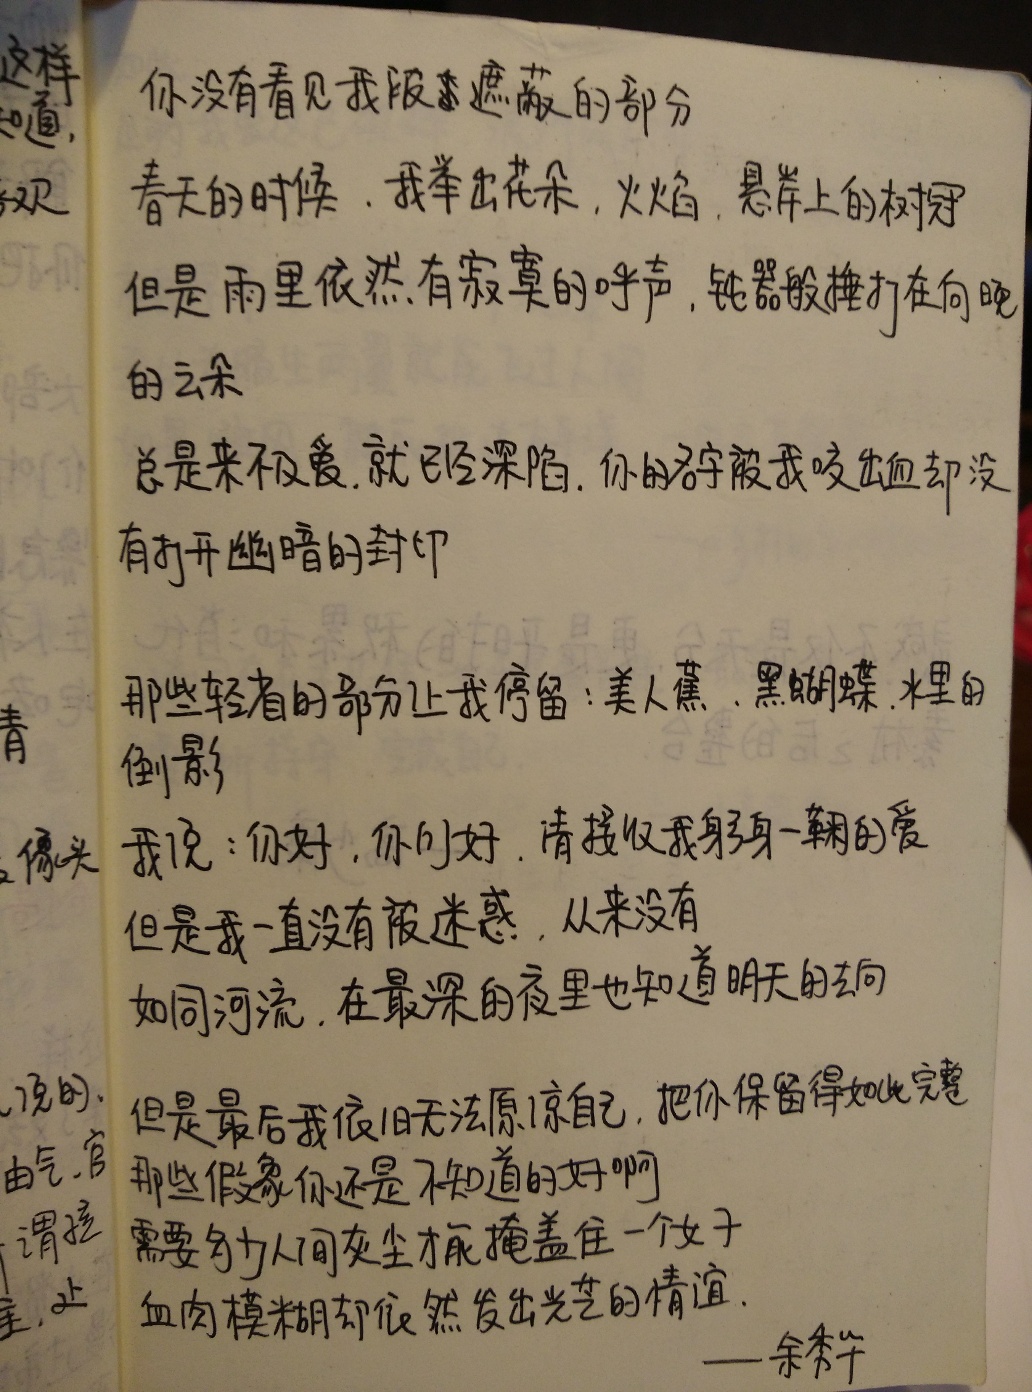 你没有看见我被遮蔽的部分
春天的时候，我举出花朵，火焰，悬岸上的树冠
但是雨里依然有寂寞的呼声，钝器般捶打在向晚
的云朵
总是来不及爱，就已经深陷，你的名字被我咬出血却没
有打开幽暗的封印
那些轻省的部分让我停留：美人蕉、黑蝴蝶、水里的
倒影
我说：你好，你们好，请接收我躬身一鞠的爱
但是我一直没有被迷惑，从来没有
如同河流，在最深的夜里也知道明天的去向
但是最后我依旧无法原谅自己，把你保留得如此完整
那些假象你还是不知道的好啊
需要多少人间灰尘才能掩盖住一个女子
血肉模糊却依然发出光芒的情谊.
——余秀华
这样
知道，
欢
青
像头
说的、
由气、官
谓孩
止